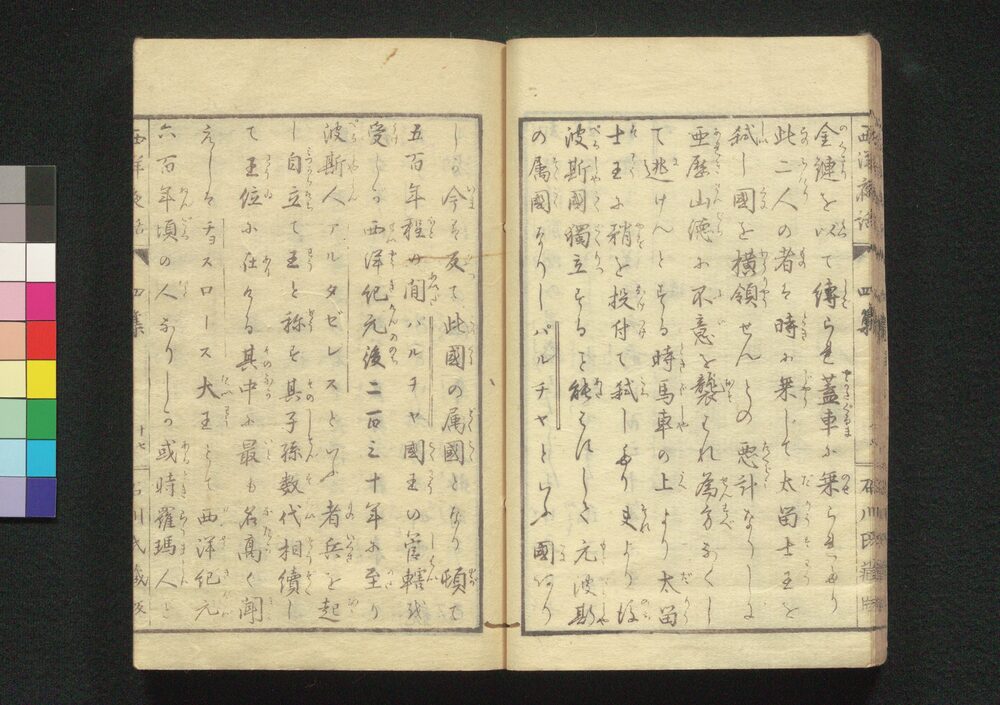 西洋夜話
四集
石川氏蔵版
金鏈を以て縛られ蓋車に乗らせたり
此二人の者は時に乗じて太留士王を
弑し國を横領せんとの悪計なりしに
亜歴山徳に不意を襲はれ為方なくし
て逃けんとする時馬車の上より太留
士王に稍を投付て弑したり夫より後
波斯國獨立する能はずして元波斯
の属國なりしパルチヤといふ國あり
しが今は反て此國の属國となり頓て
五百年程の間パルチヤ國王の管轄を
受しが西洋紀元後二百三十年に至り
波斯人アルタゼレスといふ者兵を起
し自立て王と称す其子孫数代相續し
て王位に在りける其中に最も名高く聞
えしはチョスロース大王とて西洋紀元
六百年頃の人なりしが或時羅瑪人と
西洋夜話
四集
十七
石川氏蔵版